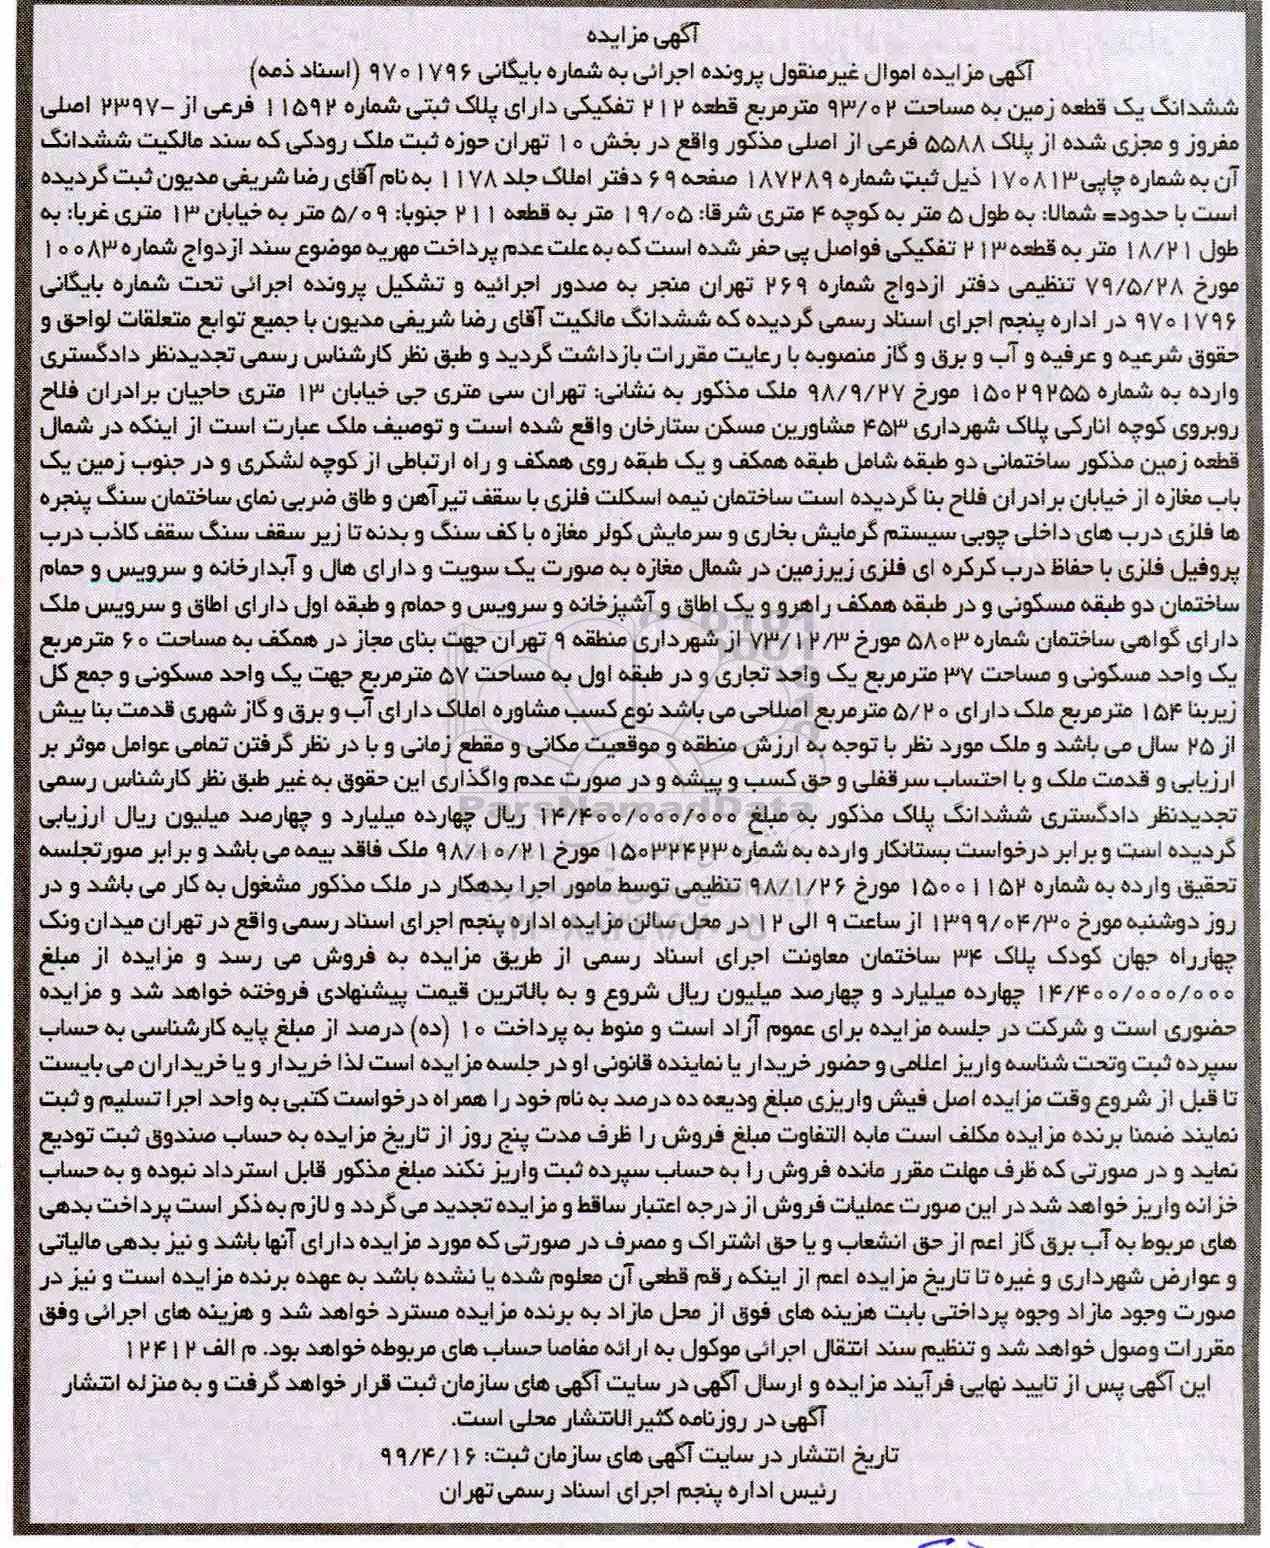 آگهی مزایده
آگهی مزایده اموال غیرمنقول پرونده اجرائی به شماره بایگانی ۹۷۰۱۷۹۶ (اسناد ذمه)
ششدانگ یک قطعه زمین به مساحت ۹۳/۰۲ مترمربع قطعه ۲۱۲ تفکیکی دارای پلاک ثبتی شماره ۱۱۵۹۲ فرعی از -۲۳۹۷ اصلی
مفروز و مجزی شده از پلاک ۵۵۸۸ فرعی از اصلی مذکور واقع در بخش ۱۰ تهران حوزه ثبت ملک رودکی که سند مالکیت ششدانگ
آن به شماره چاپی ۱۷۰۸۱۳ ذیل ثبت شماره ۱۸۷۲۸۹ صفحه ۶۹ دفتر املاک جلد ۱۱۷۸ به نام آقای رضا شریفی مدیون ثبت گردیده
است با حدود= شمالا: به طول ۵ متر به کوچه ۴ متری شرقا: ۱۹/۰۵ متر به قطعه ۲۱۱ جنوبا: ۵/۰۹ متر به خیابان ۱۳ متری غربا: به
طول ۱۸/۲۱ متر به قطعه ۲۱۳ تفکیکی فواصل پی حفر شده است که به علت عدم پرداخت مهریه موضوع سند ازدواج شماره ۱۰۰۸۳
مورخ ۷۹/۵/۲۸ تنظیمی دفتر ازدواج شماره ۲۶۹ تهران منجر به صدور اجرائیه و تشکیل پرونده اجرائی تحت شماره بایگانی
۹۷۰۱۷۹۶ در اداره پنجم اجرای اسناد رسمی گردیده که ششدانگ مالکیت آقای رضا شریفی مدیون با جمیع توابع متعلقات لواحق و
حقوق شرعیه و عرفیه و آب و برق و گاز منصوبه با رعایت مقررات بازداشت گردید و طبق نظر کارشناس رسمی تجدیدنظر دادگستری
وارده به شماره ۱۵۰۲۹۲۵۵ مورخ ۹۸/۹/۲۷ ملک مذکور به نشانی: تهران سی متری جی خیابان ۱۳ متری حاجیان برادران فلاح
روبروی کوچه انارکی پلاک شهرداری ۴۵۳ مشاورین مسکن ستارخان واقع شده است و توصیف ملک عبارت است از اینکه در شمال
قطعه زمین مذکور ساختمانی دو طبقه شامل طبقه همکف و یک طبقه روی همکف و راه ارتباطی از کوچه لشکری و در جنوب زمین یک
باب مغازه از خیابان برادران فلاح بنا گردیده است ساختمان نیمه اسکلت فلزی با سقف تیرآهن و طاق ضربی نمای ساختمان سنگ پنجره
ها فلزی درب های داخلی چوبی سیستم گرمایش بخاری و سرمایش کولر مغازه با کف سنگ و بدنه تا زیر سقف سنگ سقف کاذب درب
پروفیل فلزی با حفاظ درب کرکره ای فلزی زیرزمین در شمال مغازه به صورت یک سویت و دارای هال و آبدارخانه و سرویس و حمام
ساختمان دو طبقه مسکونی و در طبقه همکف راهرو و یک اطاق و آشپزخانه و سرویس و حمام و طبقه اول دارای اطاق و سرویس ملک
دارای گواهی ساختمان شماره ۵۸۰۳ مورخ ۷۳/۱۲/۳ از شهرداری منطقه ۹ تهران جهت بنای مجاز در همکف به مساحت ۶۰ مترمربع
یک واحد مسکونی و مساحت ۳۷ مترمربع یک واحد تجاری و در طبقه اول به مساحت ۵۷ مترمربع جهت یک واحد مسکونی و جمع کل
زیربنا ۱۵۴ مترمربع ملک دارای ۵/۲۰ مترمربع اصلاحی می باشد نوع کسب مشاوره املاک دارای آب و برق و گاز شهری قدمت بنا بیش
از ۲۵ سال می باشد و ملک مورد نظر با توجه به ارزش منطقه و موقعیت مکانی و مقطع زمانی و با در نظر گرفتن تمامی عوامل موثر بر
ارزیابی و قدمت ملک و با احتساب سرقفلی و حق کسب و پیشه و در صورت عدم واگذاری این حقوق به غیر طبق نظر کارشناس رسمی
تجدیدنظر دادگستری ششدانگ پلاک مذکور به مبلغ ۱۴/۴۰۰/۰۰۰/۰۰۰ ریال چهارده میلیارد و چهارصد میلیون ریال ارزیابی
گردیده است و برابر درخواست بستانکار وارده به شماره ۱۵۰۳۲۴۲۳ مورخ ۹۸/۱۰/۲۱ ملک فاقد بیمه می باشد و برابر صورتجلسه
تحقیق وارده به شماره ۱۵۰۰۱۱۵۲ مورخ ۹۸/۱/۲۶ تنظیمی توسط مامور اجرا بدهکار در ملک مذکور مشغول به کار می باشد و در
روز دوشنبه مورخ ۱۳۹۹/۰۴/۳۰ از ساعت ۹ الی ۱۲ در محل سالن مزایده اداره پنجم اجرای اسناد رسمی واقع در تهران میدان ونک
چهارراه جهان کودک پلاک ۳۴ ساختمان معاونت اجرای اسناد رسمی از طریق مزایده به فروش می رسد و مزایده از مبلغ
۱۴/۴۰۰/۰۰۰/۰۰۰ چهارده میلیارد و چهارصد میلیون ریال شروع و به بالاترین قیمت پیشنهادی فروخته خواهد شد و مزایده
حضوری است و شرکت در جلسه مزایده برای عموم آزاد است و منوط به پرداخت ۱۰ (ده) درصد از مبلغ پایه کارشناسی به حساب
سپرده ثبت وتحت شناسه واریز اعلامی و حضور خریدار یا نماینده قانونی او در جلسه مزایده است لذا خریدار و یا خریداران می بایست
تا قبل از شروع وقت مزایده اصل فیش واریزی مبلغ ودیعه ده درصد به نام خود را همراه درخواست کتبی به واحد اجرا تسلیم و ثبت
نمایند ضمنا برنده مزایده مکلف است مابه التفاوت مبلغ فروش را ظرف مدت پنج روز از تاریخ مزایده به حساب صندوق ثبت تودیع
نماید و در صورتی که ظرف مهلت مقرر مانده فروش را به حساب سپرده ثبت واریز نکند مبلغ مذکور قابل استرداد نبوده و به حساب
خزانه واریز خواهد شد در این صورت عملیات فروش از درجه اعتبار ساقط و مزایده تجدید می گردد و لازم به ذکر است پرداخت بدهی
های مربوط به آب برق گاز اعم از حق انشعاب و یا حق اشتراک و مصرف در صورتی که مورد مزایده دارای آنها باشد و نیز بدهی مالیاتی
و عوارض شهرداری و غیره تا تاریخ مزایده اعم از اینکه رقم قطعی آن معلوم شده یا نشده باشد به عهده برنده مزایده است و نیز در
صورت وجود مازاد وجوه پرداختی بابت هزینه های فوق از محل مازاد به برنده مزایده مسترد خواهد شد و هزینه های اجرائی وفق
مقررات وصول خواهد شد و تنظیم سند انتقال اجرائی موکول به ارائه مفاصا حساب های مربوطه خواهد بود. م الف ۱۲۴۱۲
این آگهی پس از تایید نهایی فرآیند مزایده و ارسال آگهی در سایت آگهی های سازمان ثبت قرار خواهد گرفت و به منزله انتشار
آگهی در روزنامه کثیرالانتشار محلی است.
تاریخ انتشار در سایت آگهی های سازمان ثبت: ۹۹/۴/۱۶
رئیس اداره پنجم اجرای اسناد رسمی تهران
ParsNamadData